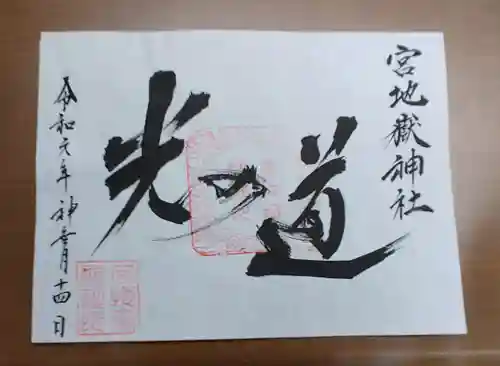 宮地嶽神社
光の道
令和元年神無月十四日